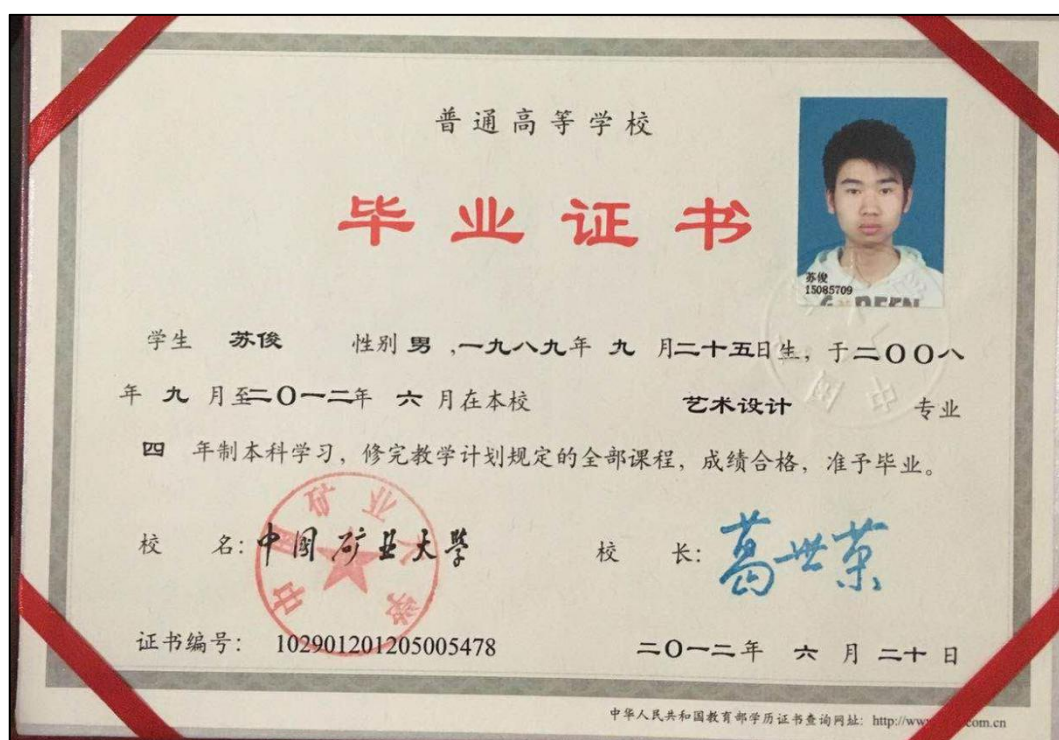 普通高等学校
毕业证书
苏俊
15085709
学生 苏俊 性别 男 ,一九八九年 九 月二十五日生，于二〇〇八
年 九 月至二〇一二年 六 月在本校 艺术设计 专业
四 年制本科学习，修完教学计划规定的全部课程，成绩合格，准予毕业。
校 名：中国矿业大学 校 长：葛世荣
证书编号： 102901201205005478 二〇一二年 六 月 二十 日
中华人民共和国教育部学历证书查询网址： http://www com.cn